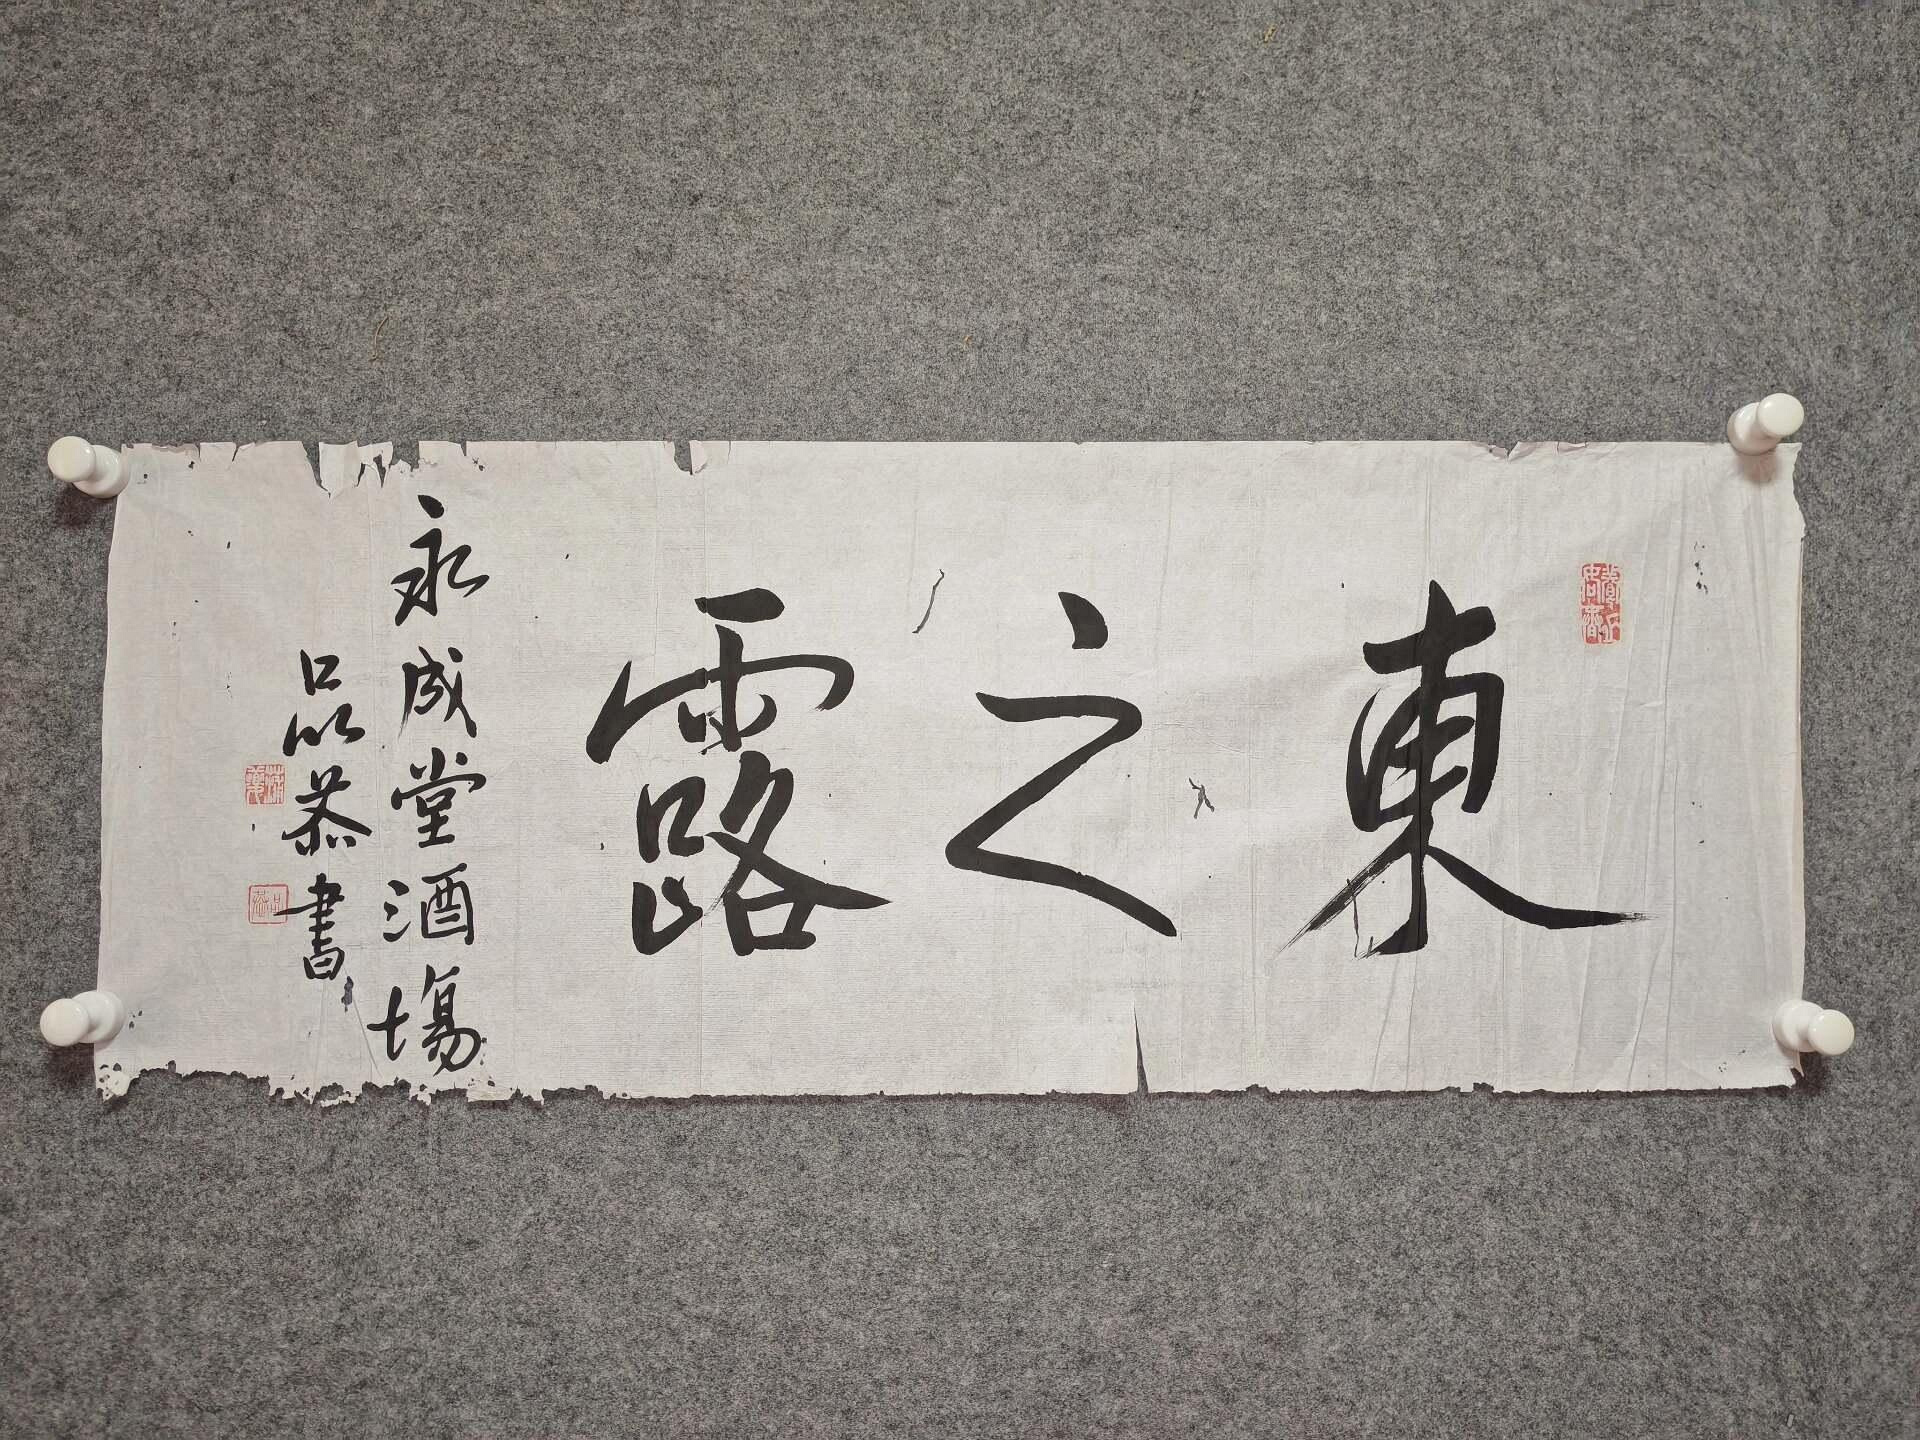 東之露
永成堂酒場
品恭書